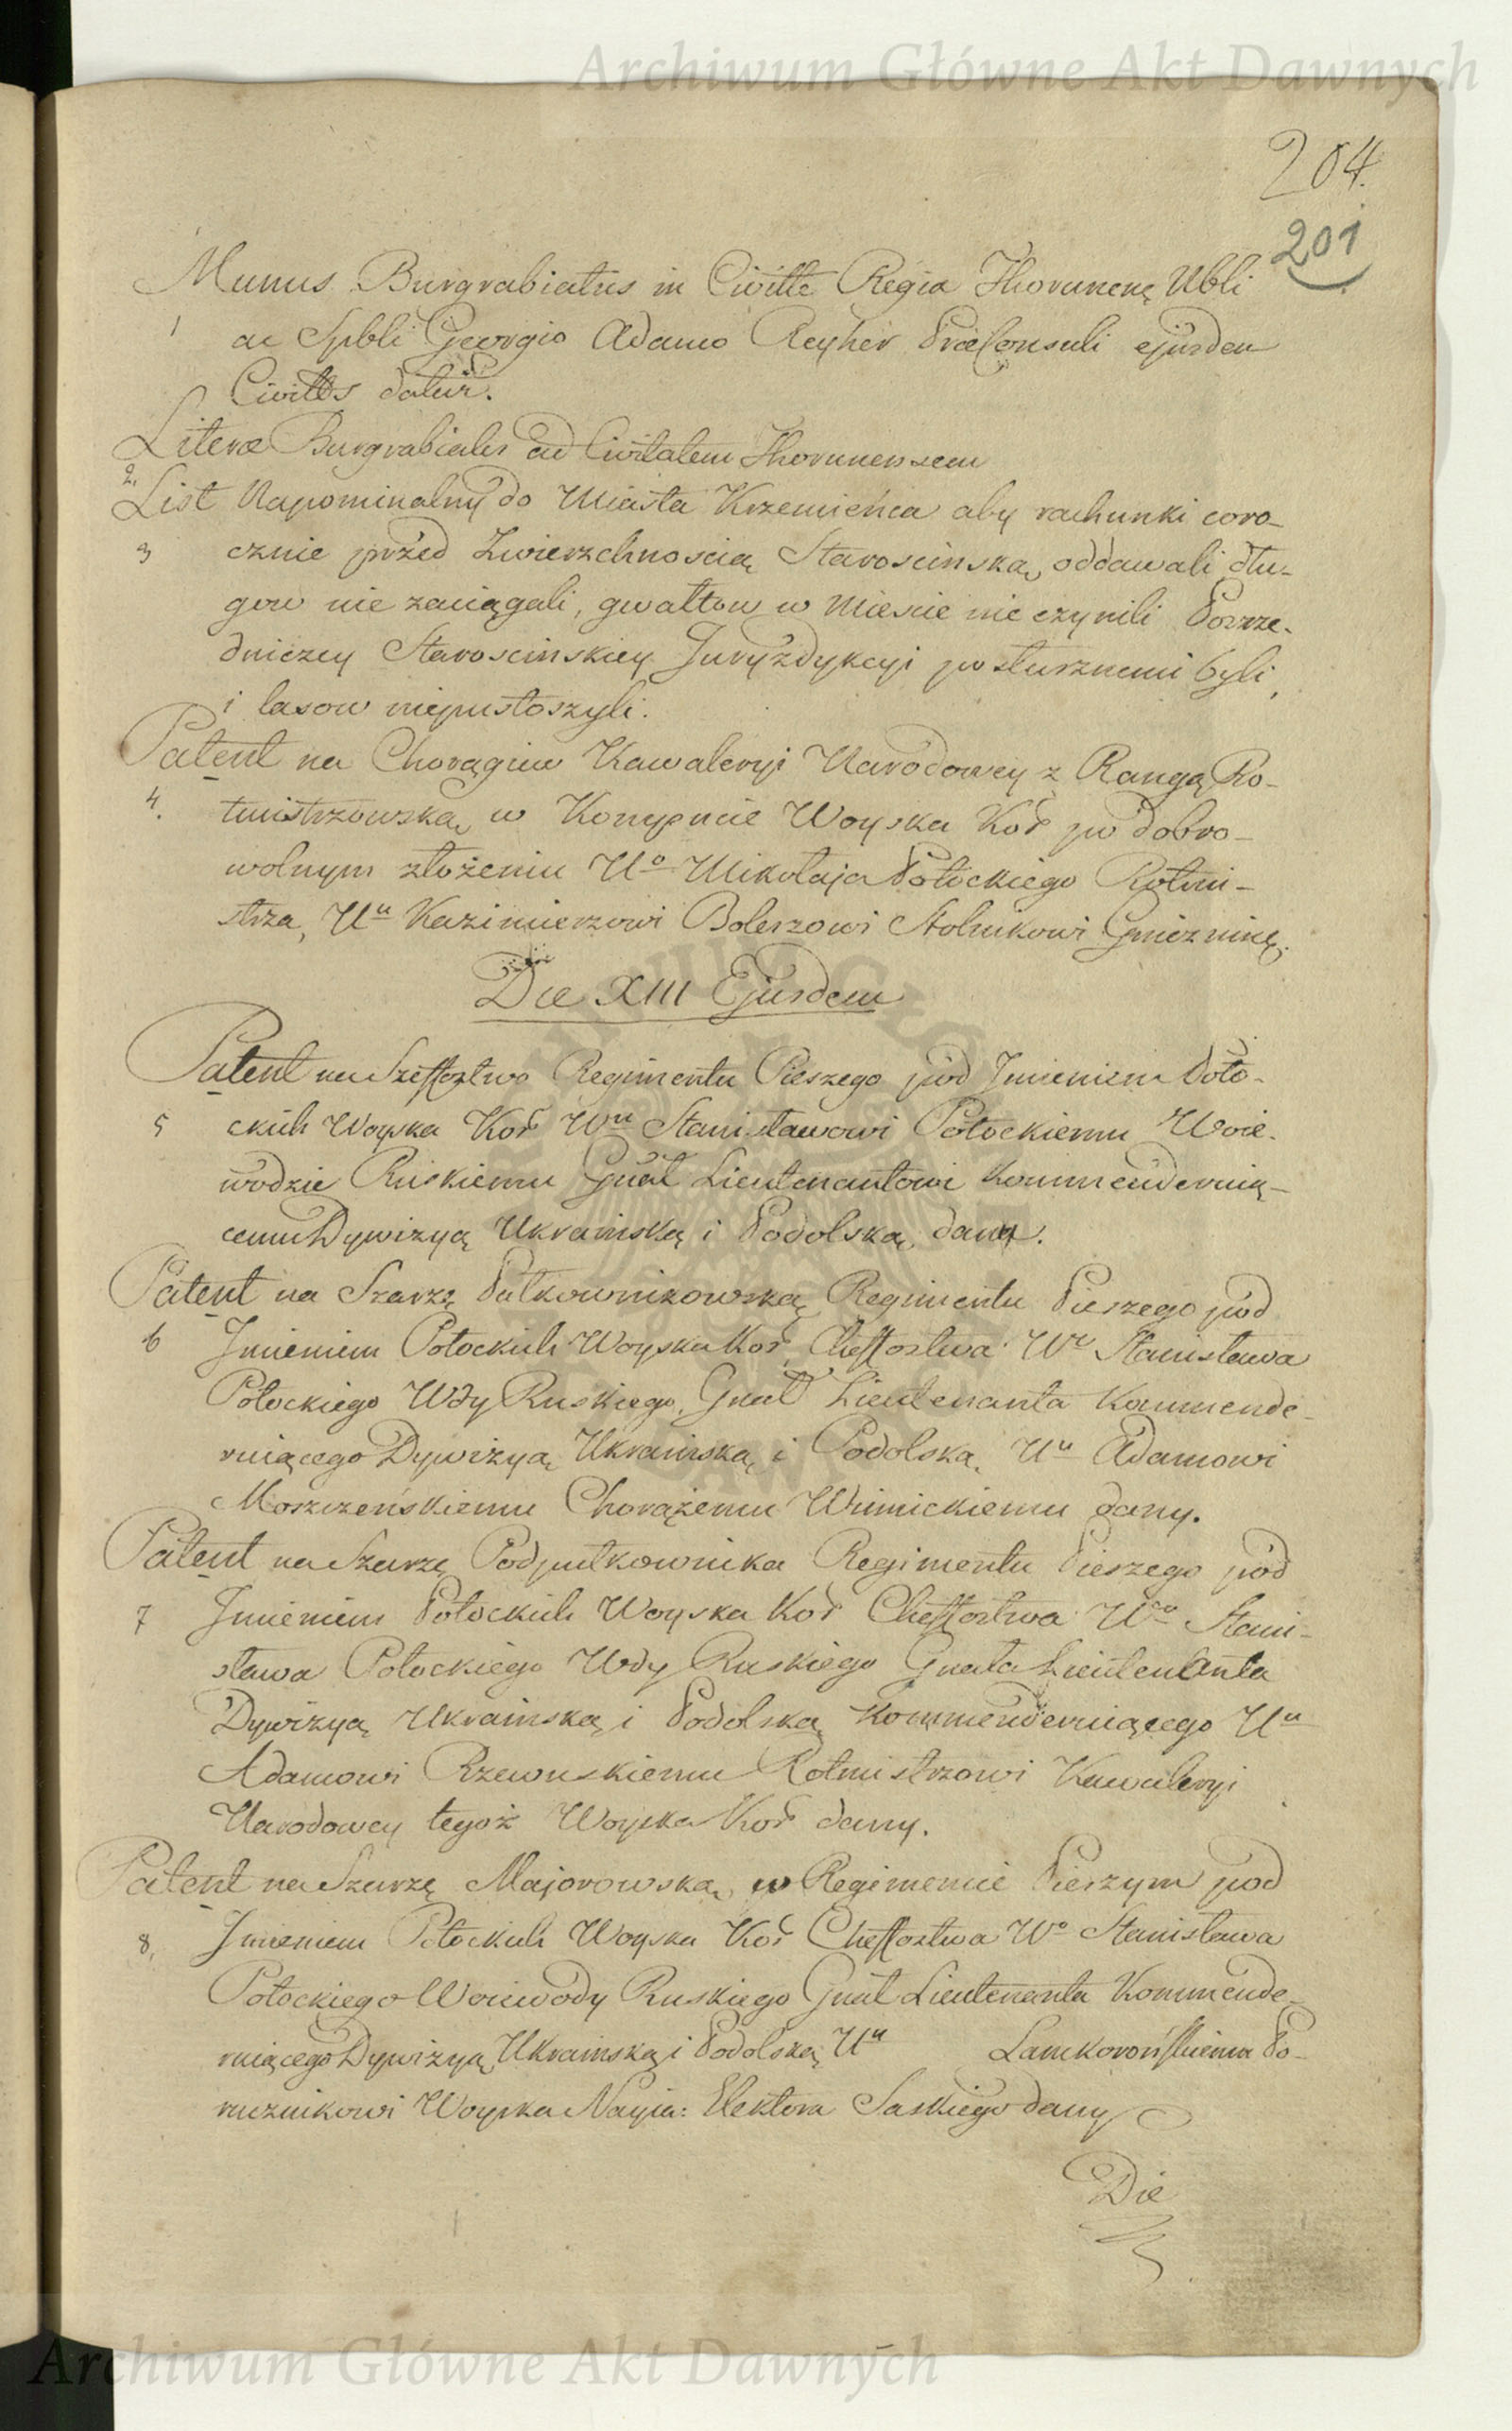 Archiwum Główne Akt Dawnych
204.
201
Munus Burgrabiatus in Civitte Regia Thorunenę Nbli
1 ac Spbli Georgio Adamo Reyher PræConsuli ejusdem
Civittis datur.
Literæ Burgrabiales ad Civitatem Thorunensem
2.
List Napominalny do Miasta Krzemieńca aby rachunki coro-
3 cznie przed Zwierzchnoscią Staroscinską oddawali dłu-
gow nie zaciągali, gwałtow w Miescie nie czynili Porzze-
dniczey Staroscinskiey Juryzdykcyi posłusznemi byli,
i lasow niepustoszyli.
Patent na Chorągiew Kawaleryi Narodowey z Rangą Ro-
4. tmistrzowską w Kompucie Woyska Koř po dobro-
wolnym złożeniu Uo Mikołaja Potockiego Rotmi-
strza, Uu Kazimierzowi Boleszowi Stolnikowi Gniezninę.
Die XIII Ejusdem
Patent na Szeffoztwo Regimentu Pieszego pod Jmieniem Poto-
5 ckich Woyska Koř Wu Stanisławowi Potockiemu Woie-
wodzie Ruskiemu Gnał Lieutenantowi Kommenderuią-
cemu Dywizyą Ukrainską i Podolską dany.
Patent na Szarzę Pułkownikowską Regimentu Pieszego pod
6 Jmieniem Potockich Woyska Koř Cheffostwa Wo Stanisława
Potockiego Wdy Ruskiego, Gnał Lieutenanta Kommende-
ruiącego Dywizyą Ukrainską i Podolską Uu Adamowi
Moszczeńskiemu Chorążemu Winnickiemu dany.
Patent na Szarzę Podpułkownika Regimentu Pieszego pod
7 Jmieniem Potockich Woyska Koř Cheffostwa Wo Stani-
sława Potockiego Wdy Ruskiego Gnała Lieutenanta
Dywizyą Ukrainską i Podolską Kommenderuiącego Uu
Adamowi Rzewuskiemu Rotmistrzowi Kawaleryi
Narodowey tegoż Woyska Koř dany.
Patent na Szarzę Majorowską w Regimencie Pieszym pod
8. Jmieniem Potockich Woyska Koř Cheffostwa Wo Stanisława
Potockiego Woiewody Ruskiego Gnał Lieutenanta Kommende-
ruiącego Dywizyą Ukrainską i Podolską Uu Lanckorońskiemu Po-
rucznikowi Woyska Nayia: Elektora Saskiego dany
Die
Archiwum Główne Akt Dawnych